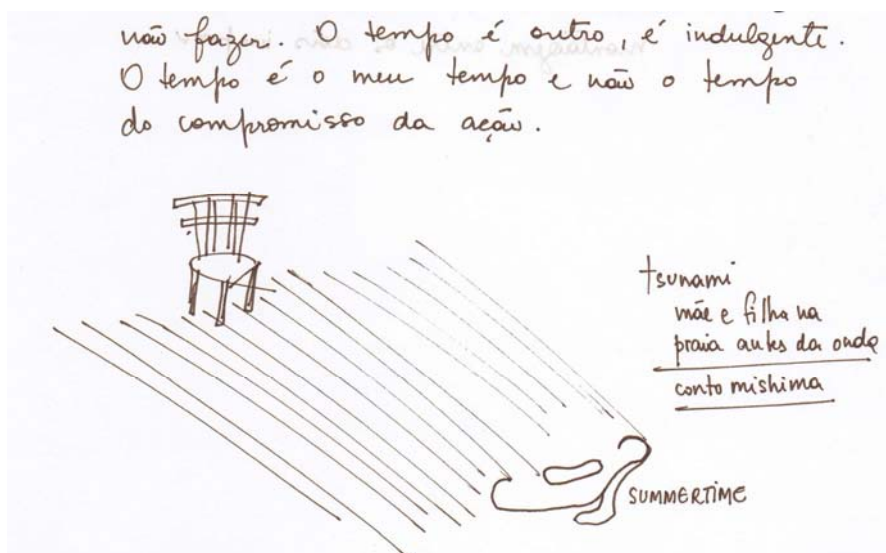 não fazer. O tempo é outro, é indulgente.
O tempo é o meu tempo e não o tempo
do compromisso da ação.
tsunami
mãe e filha na
praia antes da onda
conto mishima
SUMMERTIME